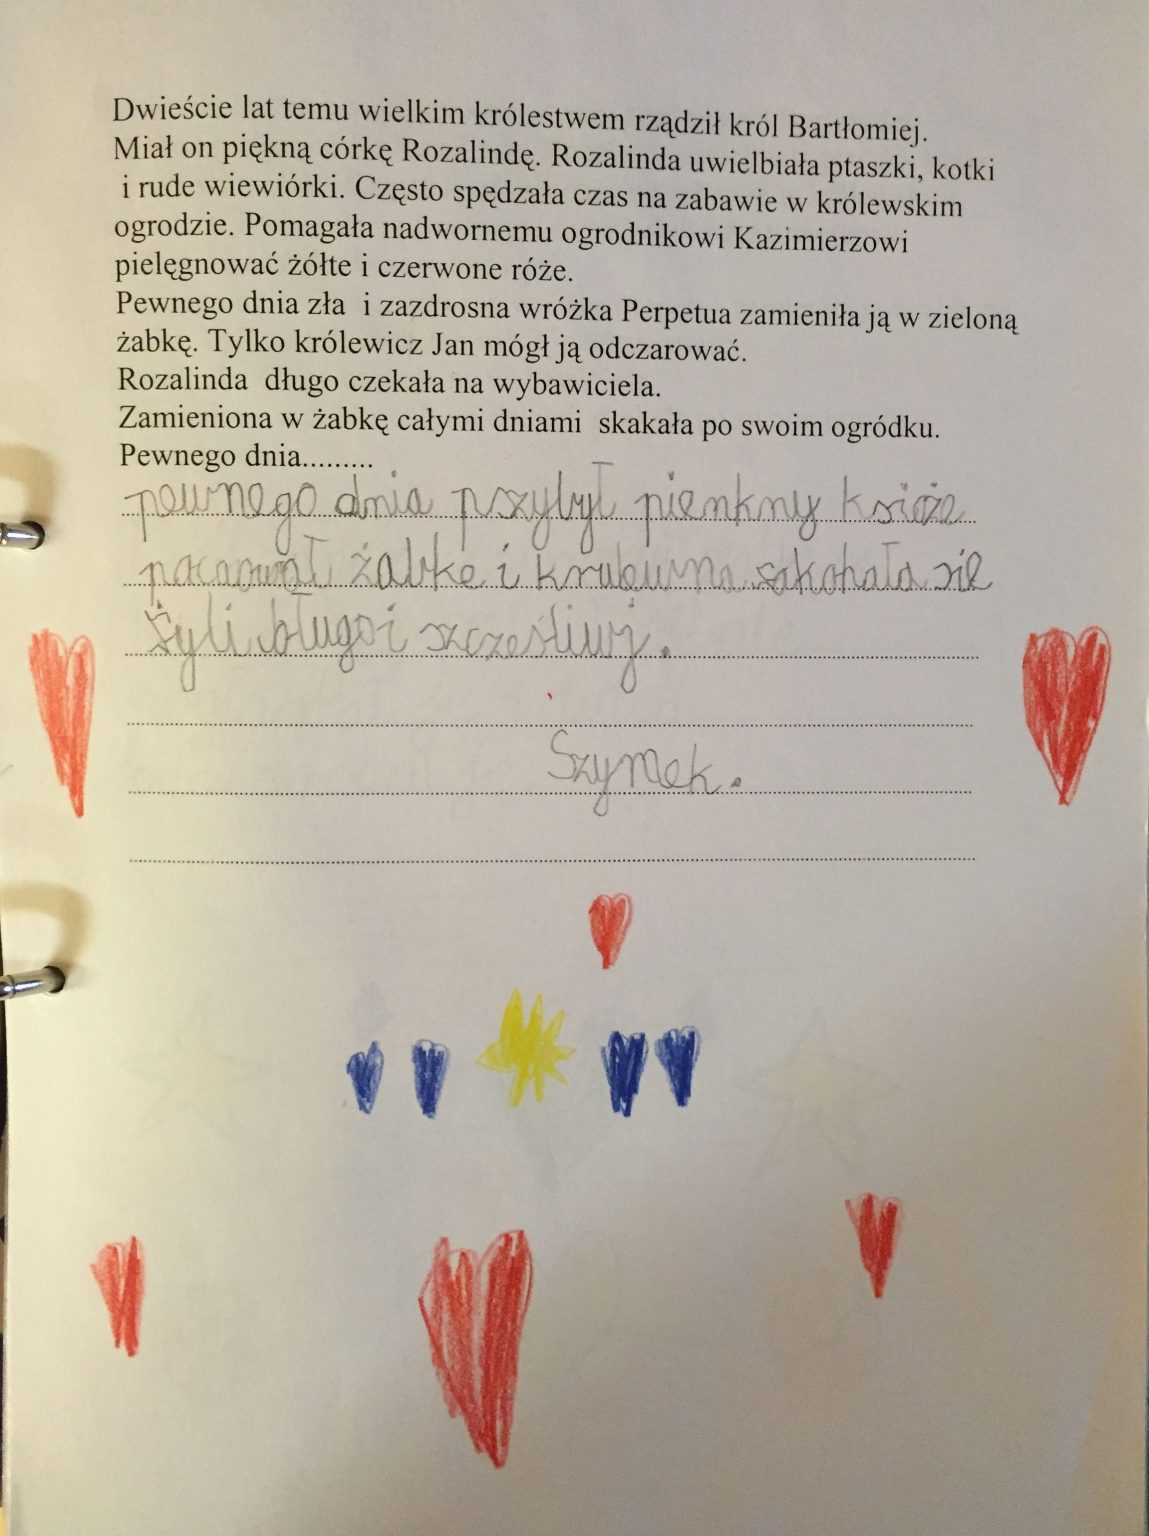 Dwieście lat temu wielkim królestwem rządził król Bartłomiej.
Miał on piękną córkę Rozalindę. Rozalinda uwielbiała ptaszki, kotki
i rude wiewiórki. Często spędzała czas na zabawie w królewskim
ogrodzie. Pomagała nadwornemu ogrodnikowi Kazimierzowi
pielęgnować żółte i czerwone róże.
Pewnego dnia zła i zazdrosna wróżka Perpetua zamieniła ją w zieloną
żabkę. Tylko królewicz Jan mógł ją odczarować.
Rozalinda długo czekała na wybawiciela.
Zamieniona w żabkę całymi dniami skakała po swoim ogródku.
Pewnego dnia.........
pewnego dnia pszybył pienkny ksioże
pocaował żabke i krulewna zakohała sie
żyli długo i szczęśliwj.
Szymek.